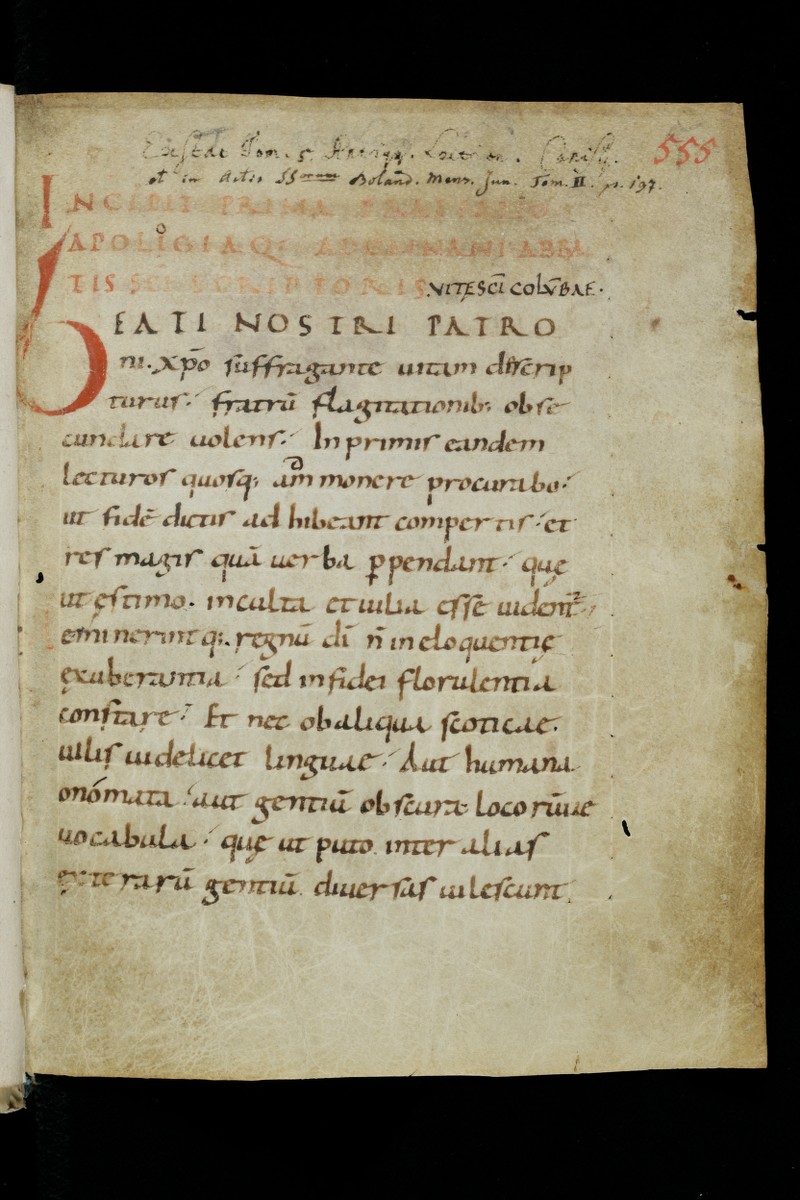 Existat Tom. 5. Antiqq. Lection. Canisij.
555
et in Actis SS Boland. Mens. Jun. Tom. II. p. 197.
INCIPIT PRIMA PRAEFATIO
APOLIGIAQ; ADOMNANI ABBA
TIS SCI SCRIPTORIS VITĘ SCI COLVBAE.
BEATI NOSTRI PATRO
ni. xpo suffragante uitam discrip
turus; fratrū flagitationib; obse
cundare uolens; In primis eandem
lecturos quosq; ammonere procurabo;
ut fidē dictis adhibeant compertis; et
res magis quā uerba ꝑpendant; quę
ut ęstimo. inculta et uilia esse uident;
eminerintq;. regnū dī n̄ in eloquentię
exuberantia; sed in fidei florulentia
constare; Et nec ob aliqua scoticae.
uilis uidelicet linguae; Aut humana
onómata; aut gentiū obscura locorūue
uocabula; quę ut puto. inter alias
exterarū gentiū. diuersas uilescunt.